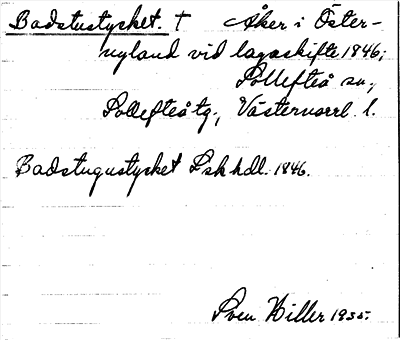 Badstustycket. † Åker i Öster-
nyland vid lagaskifte 1846;
Sollefteå sn,
Sollefteå tg., Västernorrl. l.
Badstugustycket Lskhdl. 1846.
Sven Hiller 1935.